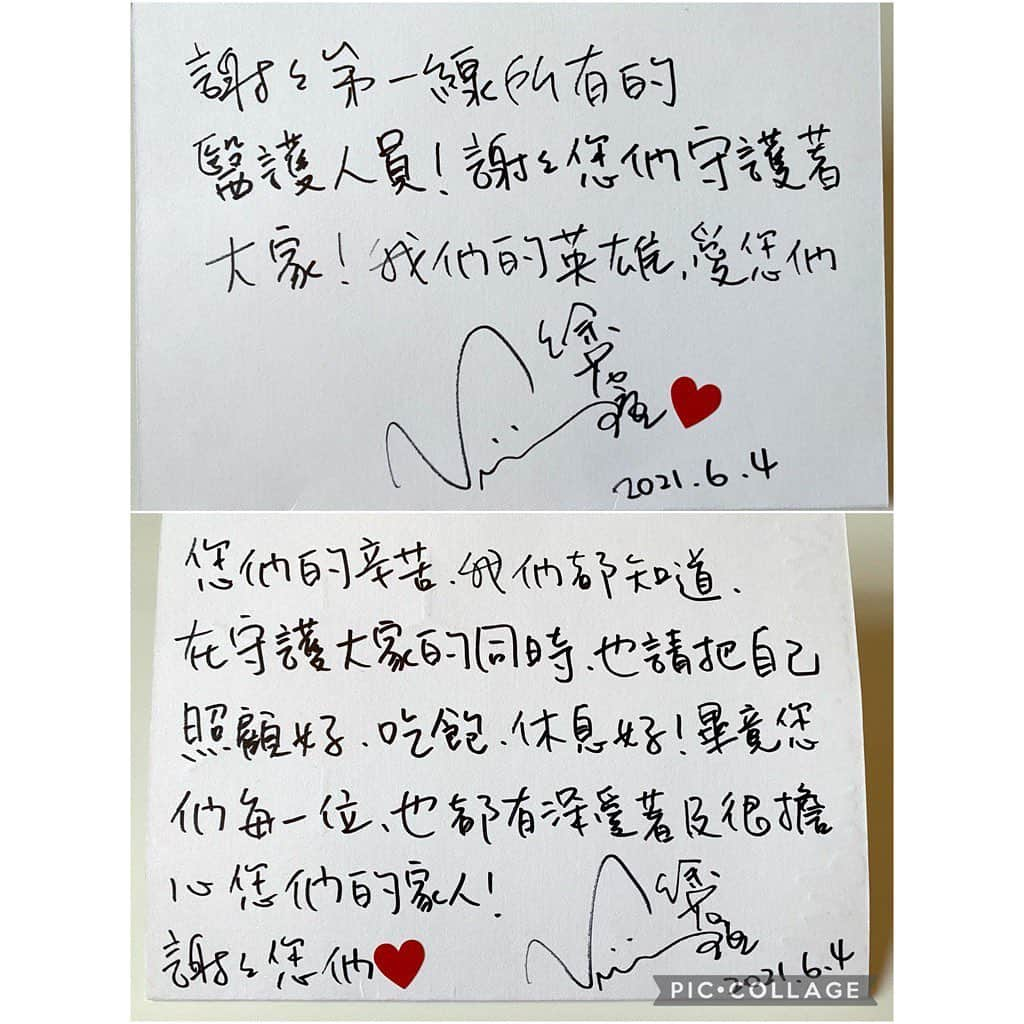 謝々第一線所有的
醫護人員！謝々您們守護著
大家！我們的英雄、愛您們
2021.6.4
您們的辛苦、我們都知道、
在守護大家的同時、也請把自己
照顧好、吃飽、休息好！畢竟您
們每一位、也都有深愛著及很擔
心您們的家人！
謝々您們
2021.6.4
PIC•COLLAGE